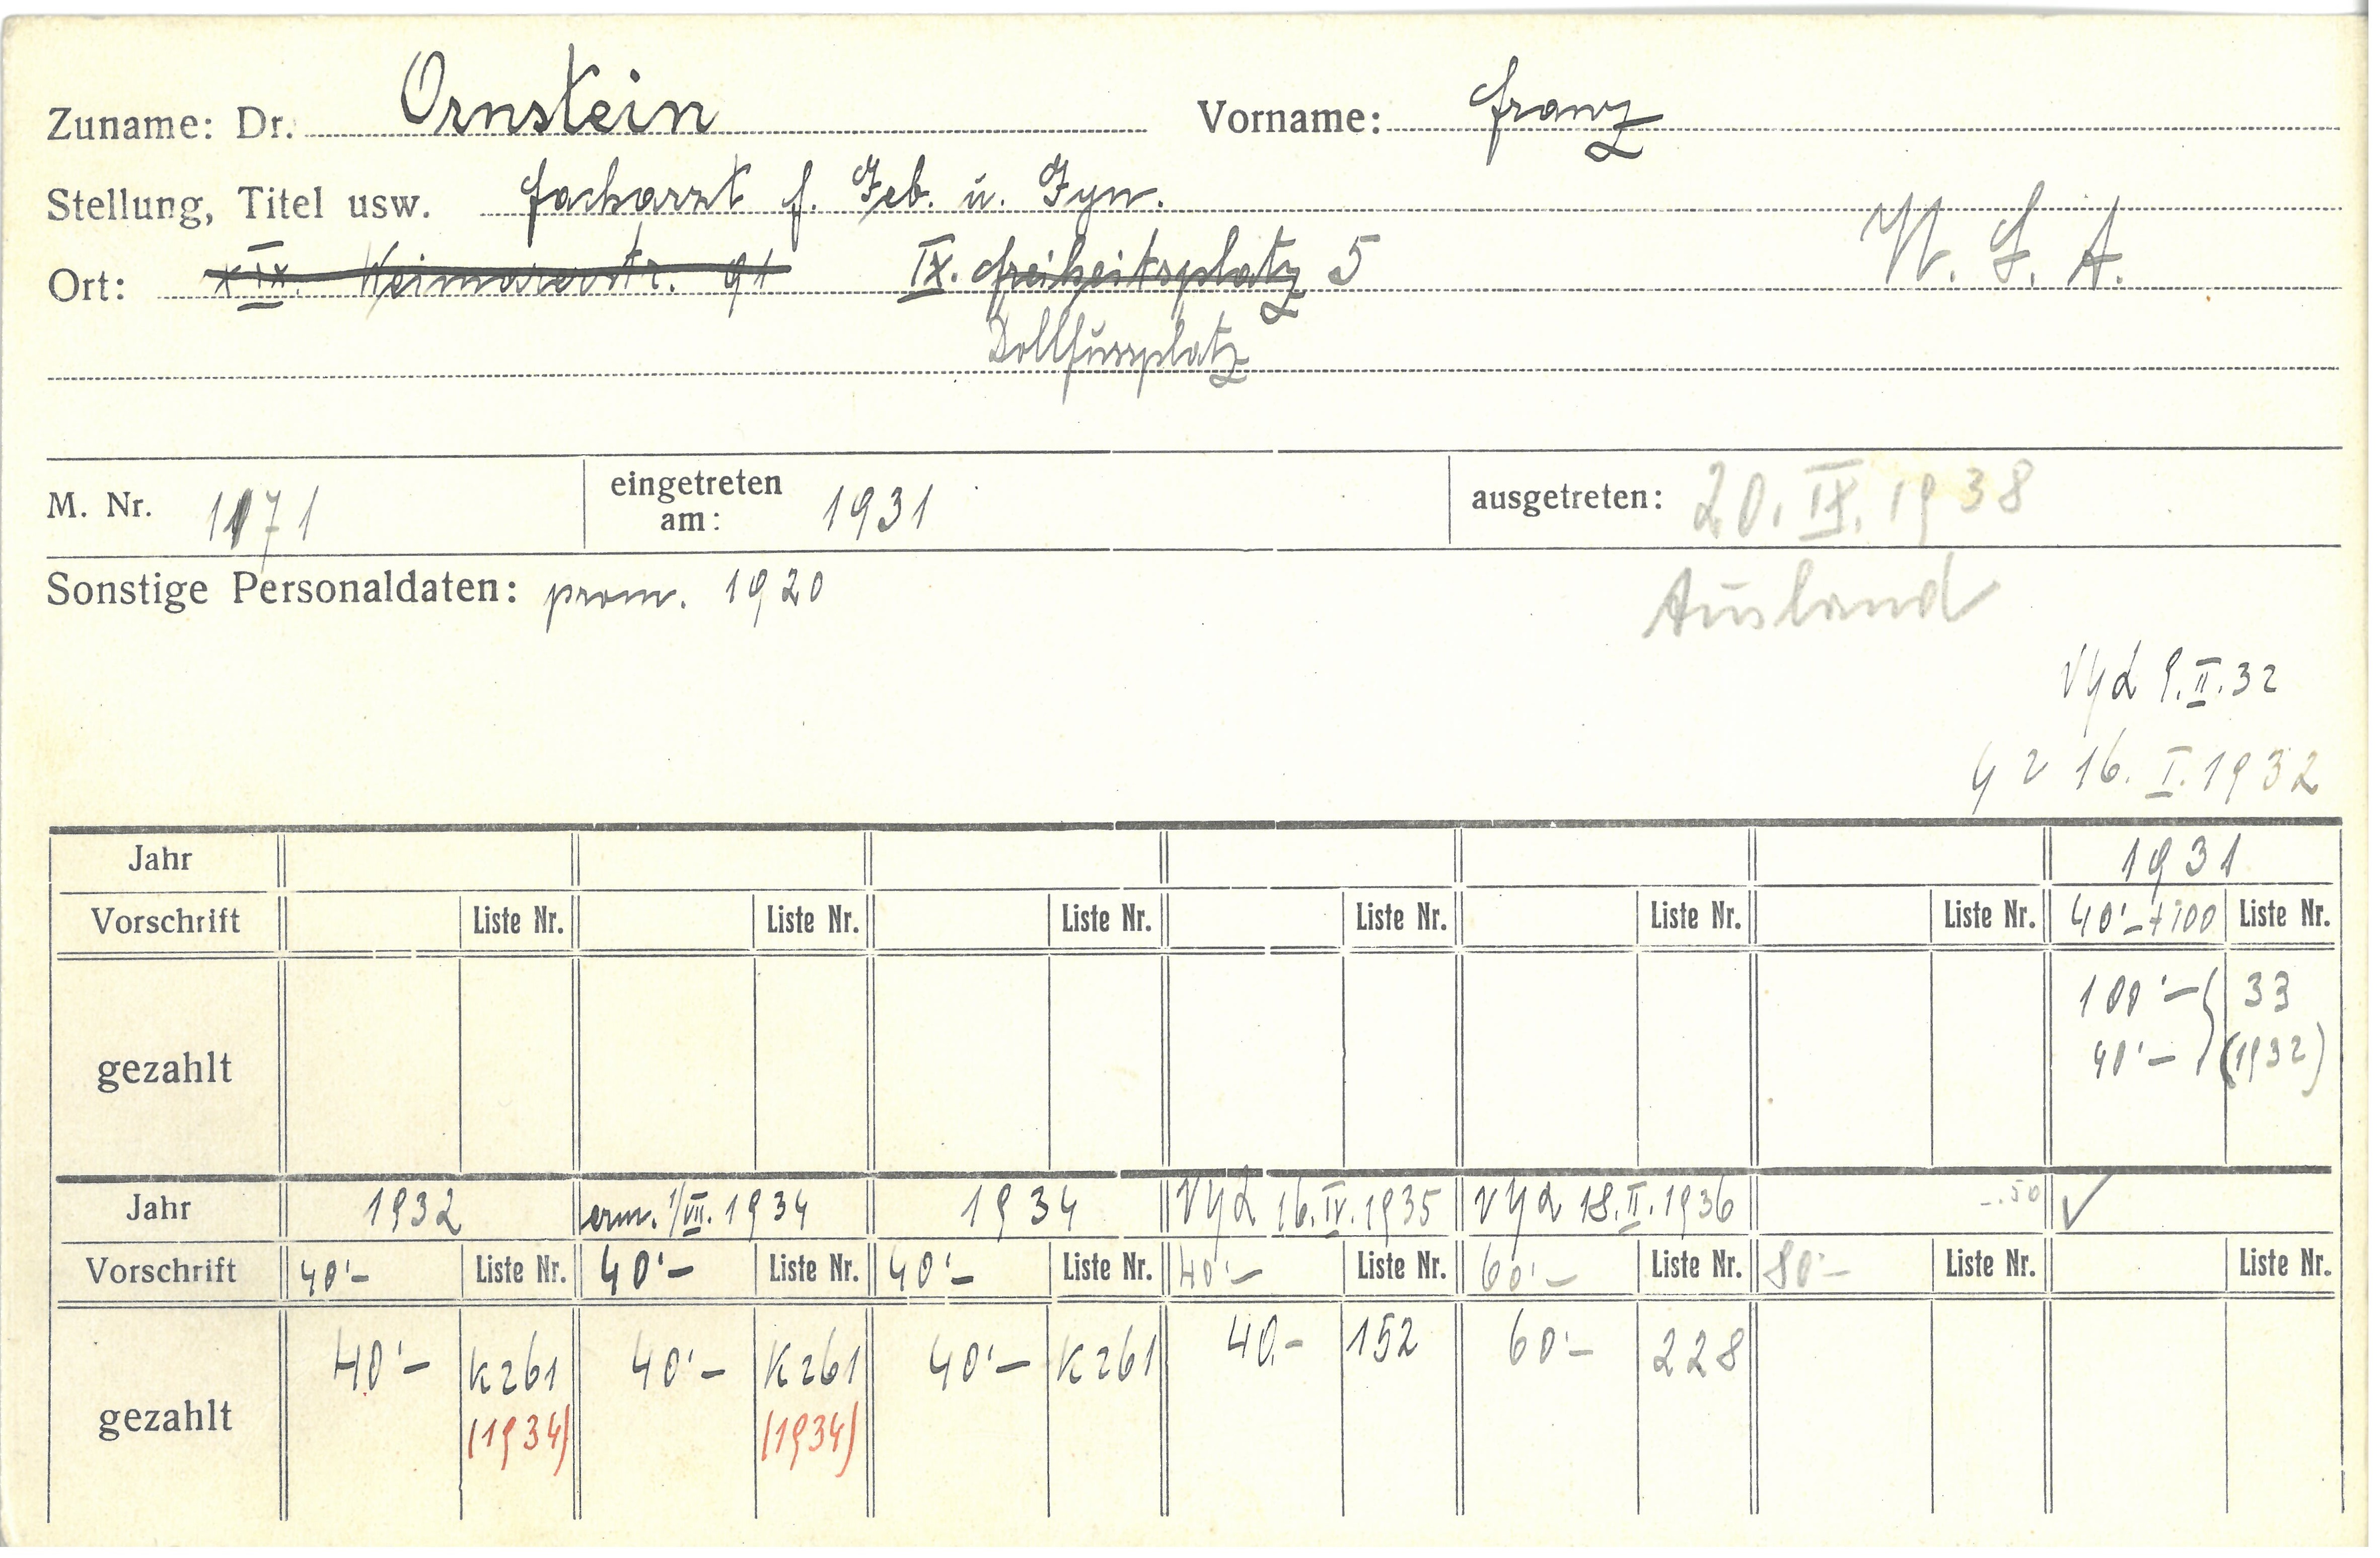 Zuname: Dr. Ornstein Vorname: Franz
Stellung, Titel usw. Facharzt f. Geb. u. Gyn.
Ort: XIX. Weimarerstr. 91 IX. Freiheitsplatz 5
Dollfussplatz
M. Nr. 1171 eingetreten am: 1931 ausgetreten: 20. IX. 1938
Sonstige Personaldaten: prom. 1920 Ausland
9. II. 32
16. I. 1932
Jahr 1931
Vorschrift Liste Nr. Liste Nr. Liste Nr. Liste Nr. Liste Nr. Liste Nr. 40'- + 100 Liste Nr.
gezahlt 100'- 33
40'- (1932)
Jahr 1932 erm. 1/VII. 1934 1934 16. IV. 1935 18. II. 1936 -.50 ✓
Vorschrift 40'- Liste Nr. 40'- Liste Nr. 40'- Liste Nr. 40'- Liste Nr. 60'- Liste Nr. 80'- Liste Nr. Liste Nr.
gezahlt 40'- K261 40'- K261 40'- K261 40.- 152 60'- 228
(1934) (1934)